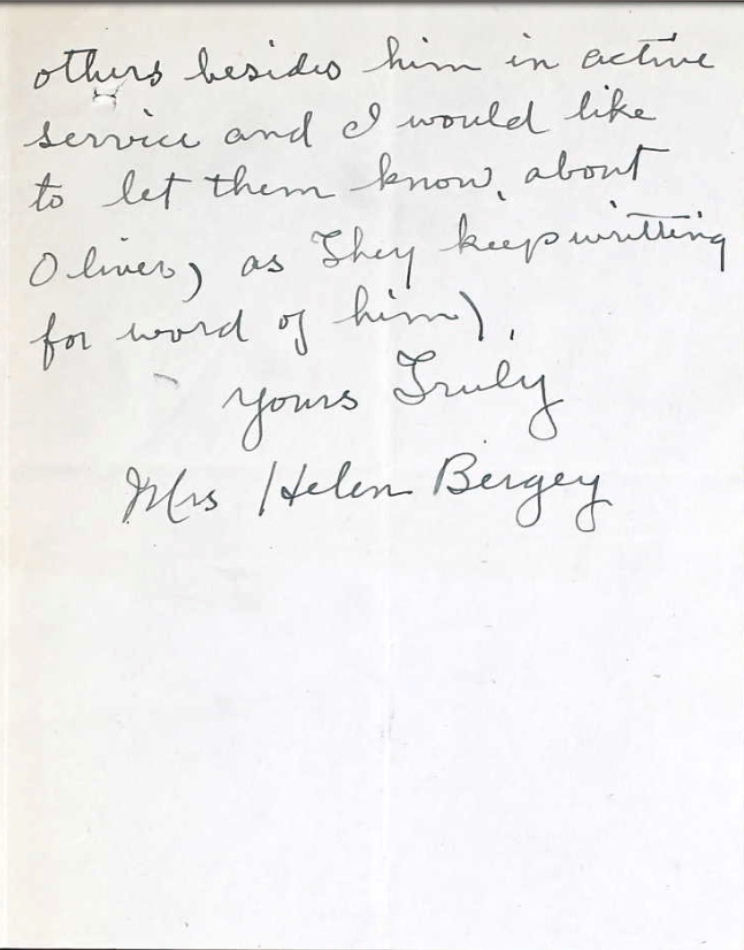 others besides him in active
service and I would like
to let them know, about
Oliver) as They keep writting
for word of him).
Yours Truly
Mrs Helen Bergey